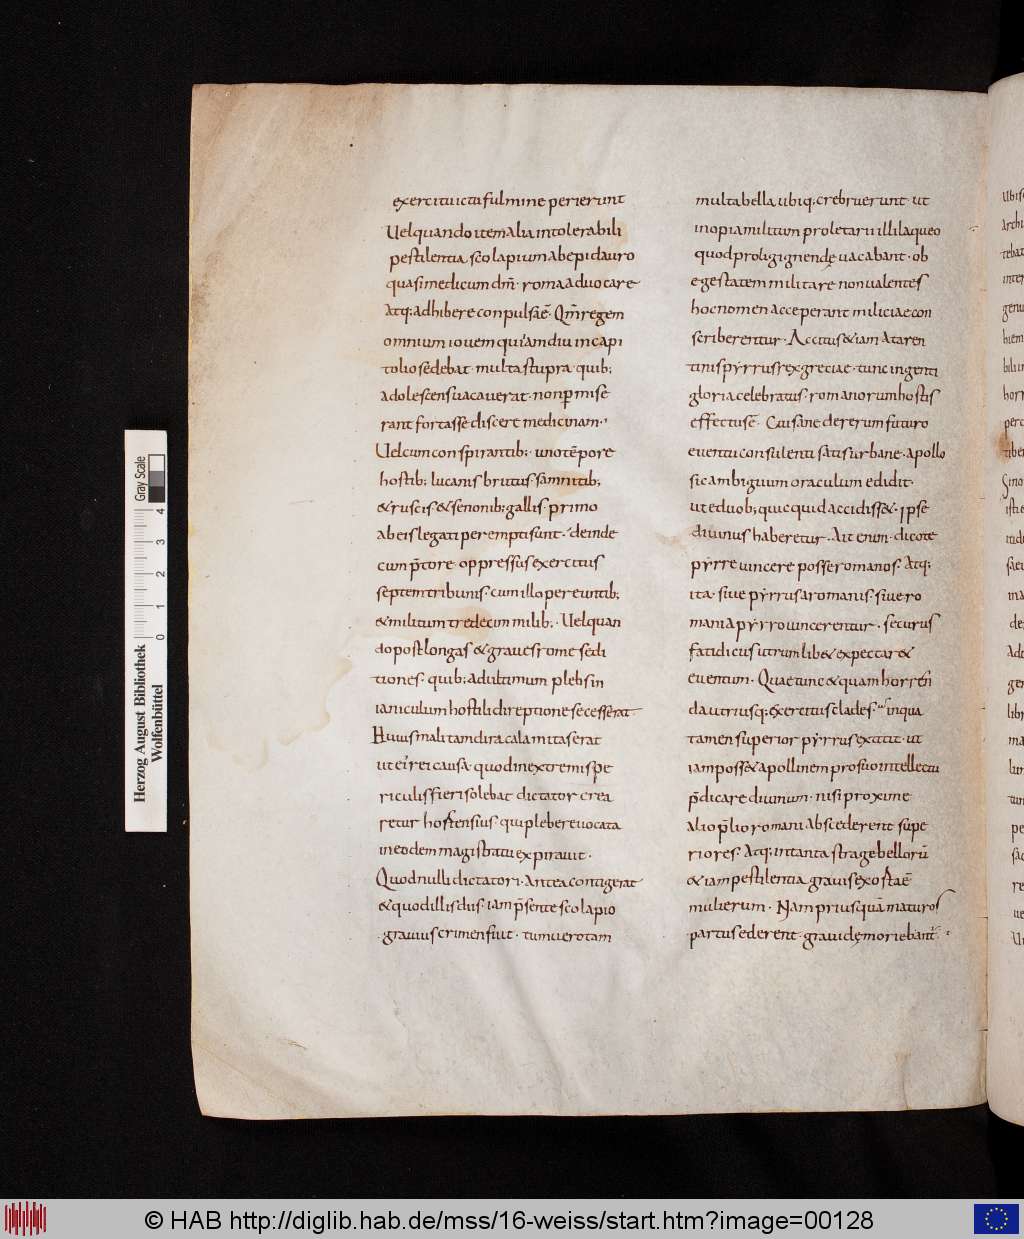 exercitu ictu fulmine perierunt
Uel quando item alia intolerabili
pestilentia scolapium ab epidauro
quasi medicum dm̄· roma aduocare
Atq; adhibere conpulsa ē· Qm̄ regem
omnium iouem qui iam diu in capi
tolio sedebat· multa stupra· quib;
adolescens uacauerat· non p̲mise
rant fortasse discere medicinam·
Uel cum conspirantib;· uno tēpore
hostib; lucanis brutus· samnitib;
& ruscis & senonib; gallis· primo
ab eis legati perempti sunt· deinde
cum p̄tore oppressus exercitus
septem tribunis· cum illo pereuntib;
& militum tredecim milib;· Uel quan
do post longas & graues rome sedi
tiones· quib; ad ultimum plebs in
ianiculum hostili direptione secesserat·
Huius mali tam dira calamitas erat
ut ei rei causa· quod in extremis pe
riculis fieri solebat dictator crea
retur hostensius· qui plebe reuocata
in eodem magistratu expirauit·
Quod nulli dictatori· Antea contigerat
& quod illis diis· iam p̄sente scolapio
grauius crimen fiut· tum uero tam
multa bella ubiq; crebruerunt· ut
inopia militum proletarii illi laqueo
quod proli gignendę uacabant· ob
egestatem militare non ualentes
hoc nomen acceperant miliciae con
scriberentur· Accitus & iam A taren
tinis pẏrrus rex greciae· tunc ingenti
gloria celebratus· romanorum hostis
effectus ē· Cui sane de rerum futuro
euentu consulenti satis urbane· apollo
sic ambiguum oraculum edidit·
ut e duob; quicquid accidiss&· ipse
diuinus haberetur· Ait enim· dico te
pẏrre uincere posse romanos· Atq;
ita· siue pẏrrus a romanis· siue ro
mani a pẏrro uincerentur· securus
fatidicus utrumlib& expectar&
euentum· Quae tunc & quam horren̄
da utriusq; exercitus clades· in qua
tamen superior pẏrrus extitit· ut
iam poss& apollinem pro suo intellectu
p̄dicare diuinum· nisi proxime
alio p̄lio romani abscederent supe
riores· Atq; in tanta strage bellorū
& iam pestilentia grauis exorta ē
mulierum· Nam priusquā maturos
partus ederent· grauidę moriebant̄·
© HAB http://diglib.hab.de/mss/16-weiss/start.htm?image=00128
Herzog August Bibliothek
Wolfenbüttel
Gray Scale
0 1 2 3 4